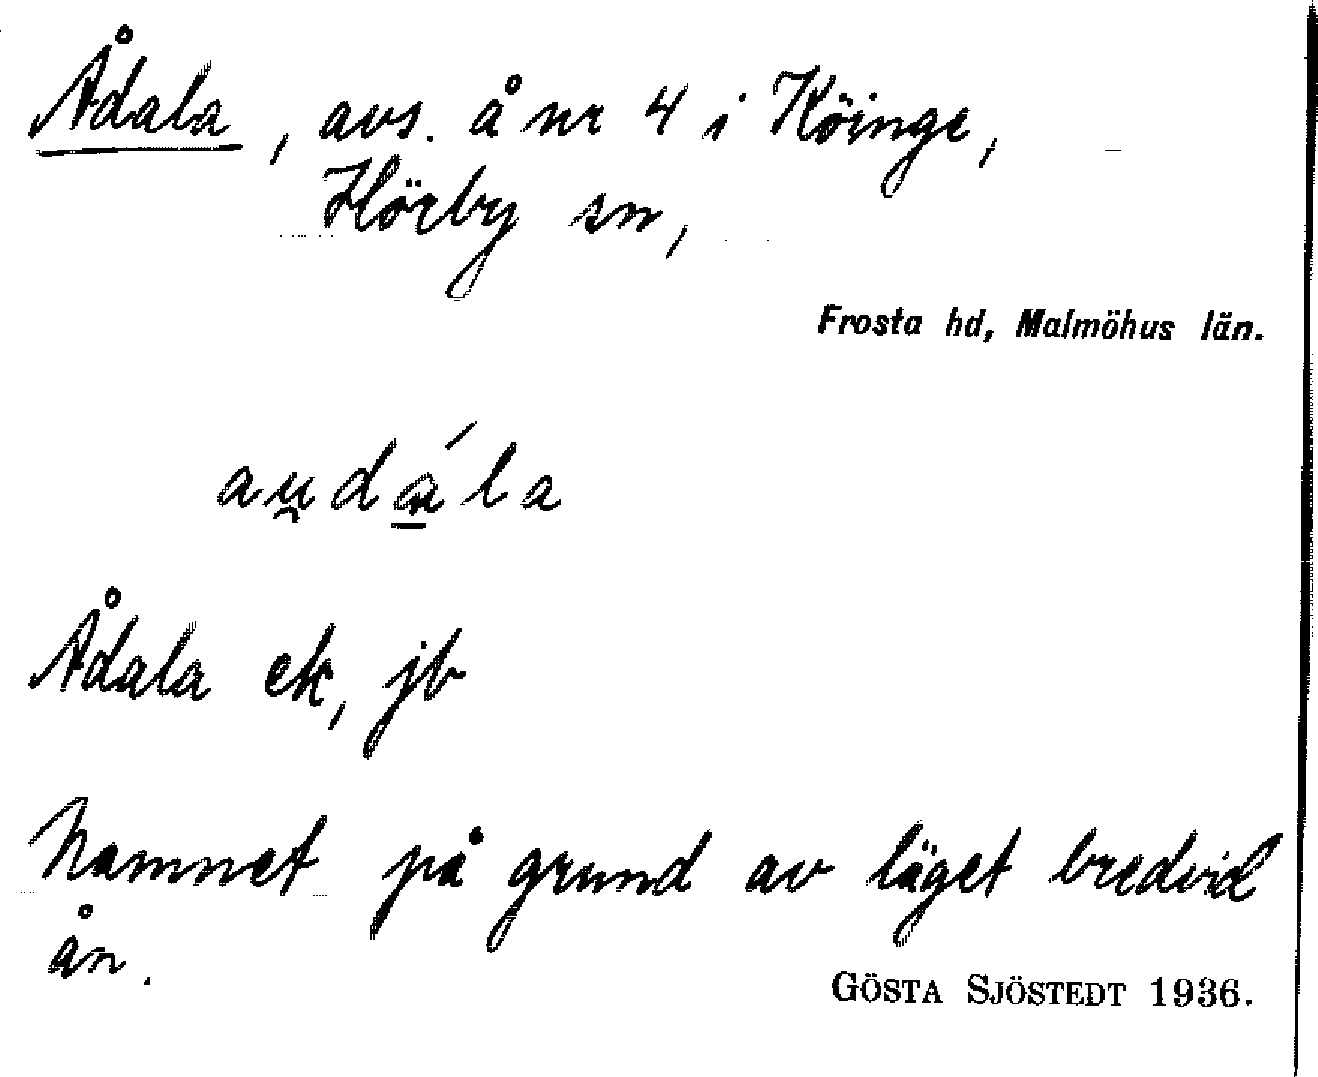 Ådala, avs. å nr 4 i Köinge,
Hörby sn,
Frosta hd, Malmöhus län.
au̯dá̱la
Ådala ek, jb
Namnet på grund av läget bredvid
ån.
GÖSTA SJÖSTEDT 1936.